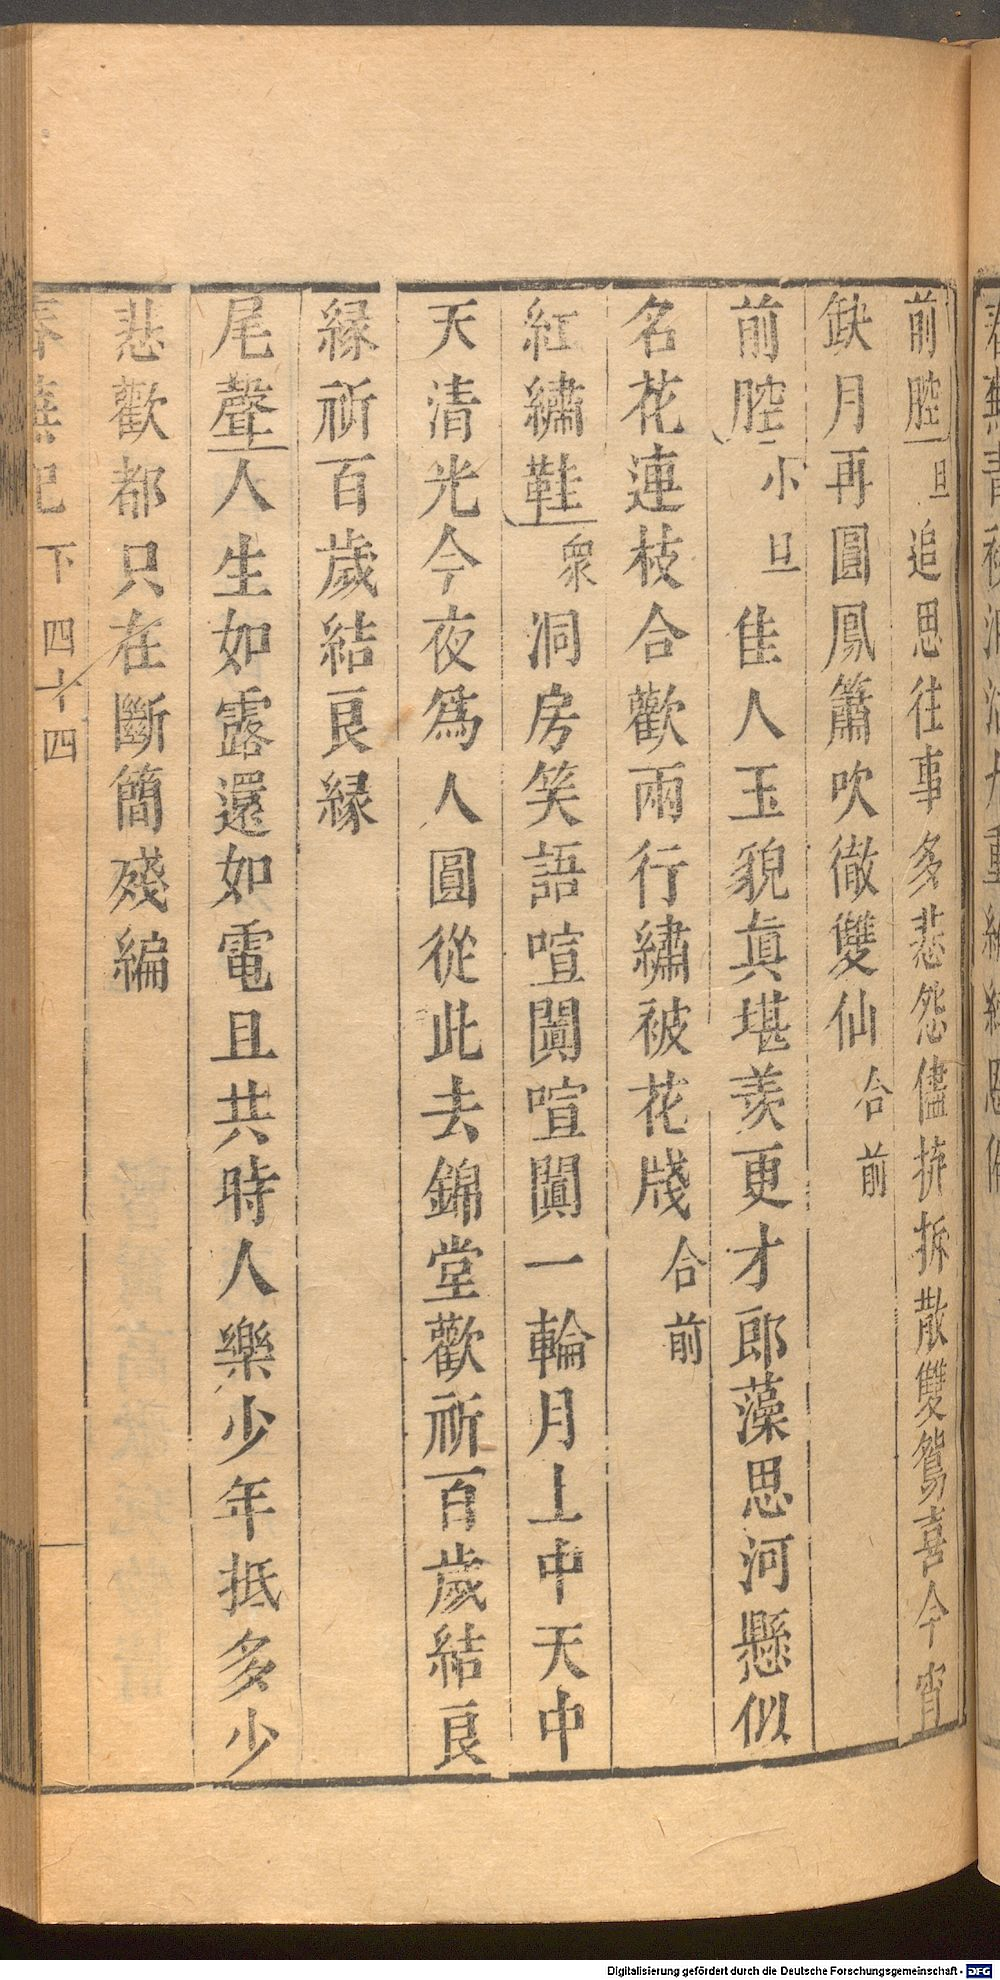 前腔旦追思往事多悲怨儘拚拆散雙鴛喜今宵
缺月再圓鳳簫吹徹雙仙合前
前腔小旦佳人玉貌眞堪羨更才郎藻思河懸似
名花連枝合歡兩行繡被花牋合前
紅繡鞋衆洞房笑語喧闐喧闐一輪月上中天中
天清光今夜爲人圓從此去錦堂歡祈百歲結良
緣祈百歲結良緣
尾聲人生如露還如電且共時人樂少年抵多少
悲歡都只在斷簡殘編
春蕪記 下 四十四
Digitalisierung gefördert durch die Deutsche Forschungsgemeinschaft - DFG